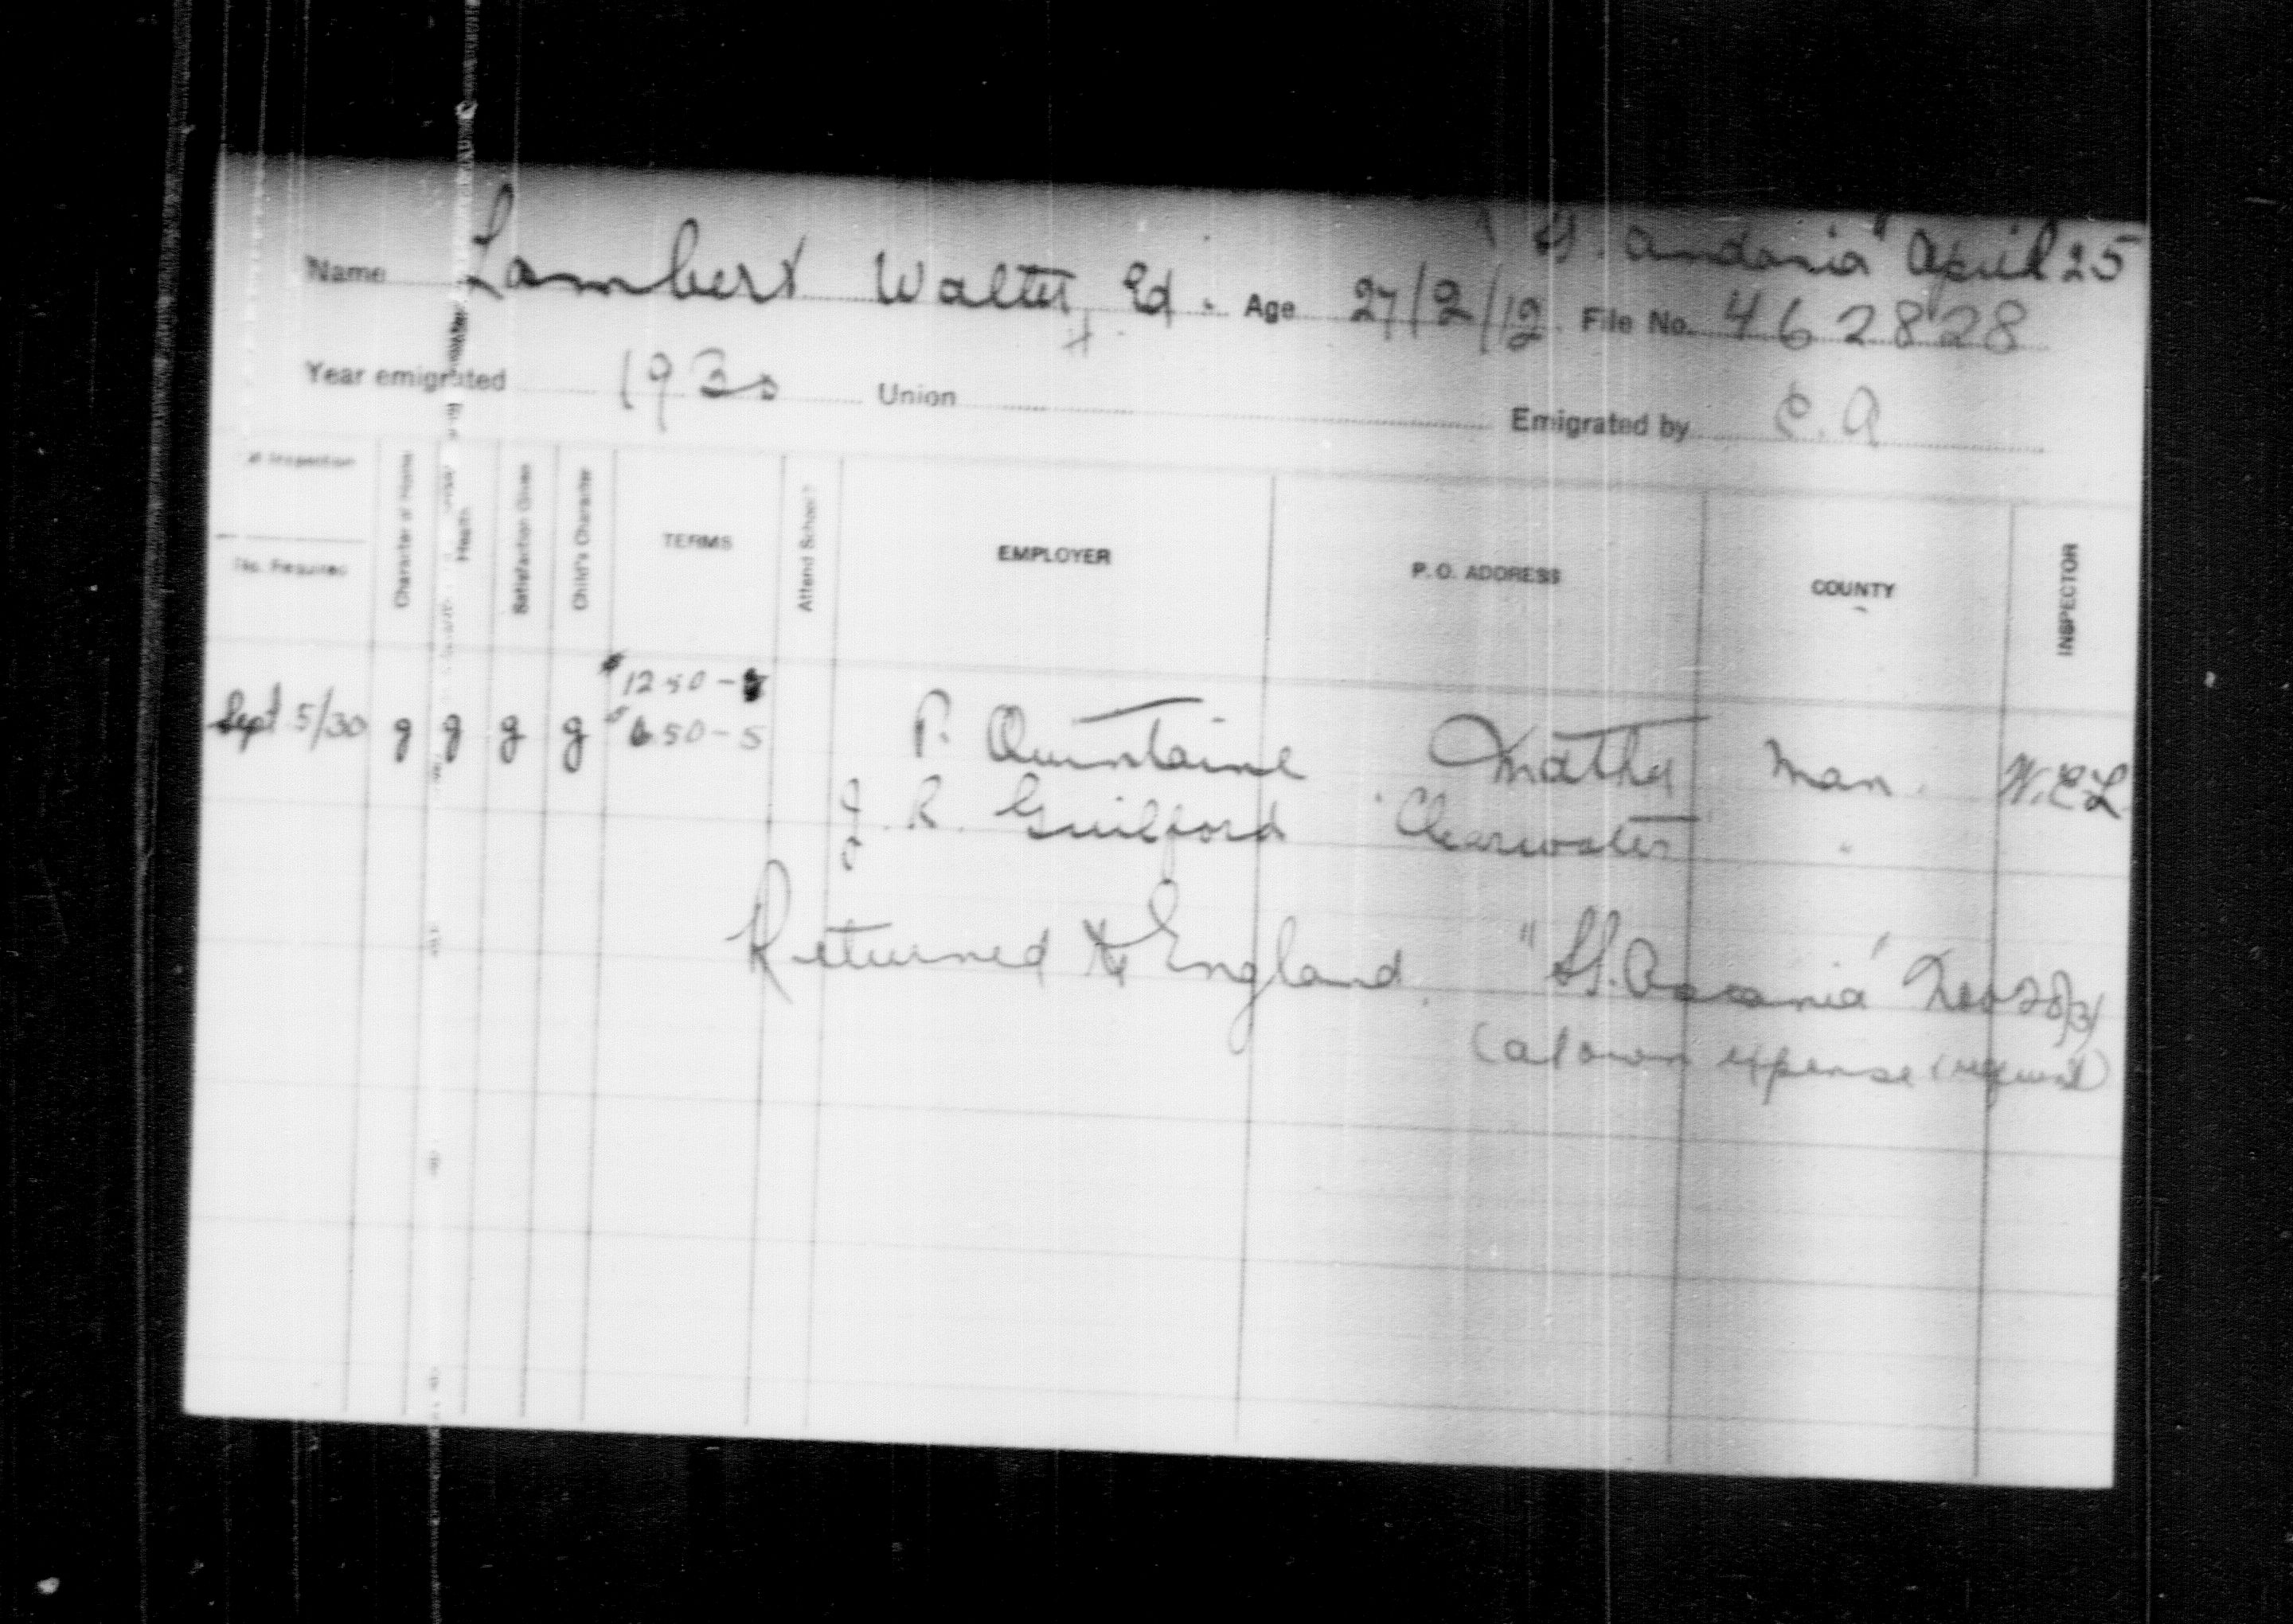 "SS. Andania" April 25
Name Lambert Walter Ed. Age 27/2/12 File No. 462828
Year emigrated 1930 Union Emigrated by C.A
of Inspection
No. Required
Character of Home
Health
Satisfaction Given
Child's Character
TERMS
Attend School?
EMPLOYER
P. O. ADDRESS
COUNTY
INSPECTOR
$12.50 -
Sept 5/30 g g g g $6.50 - 5 P. Quintaine Man. W.E.L
J. R. Guilford Clearwater "
Returned to England. "SS. Ascania" 28/31
(at own expense (request)